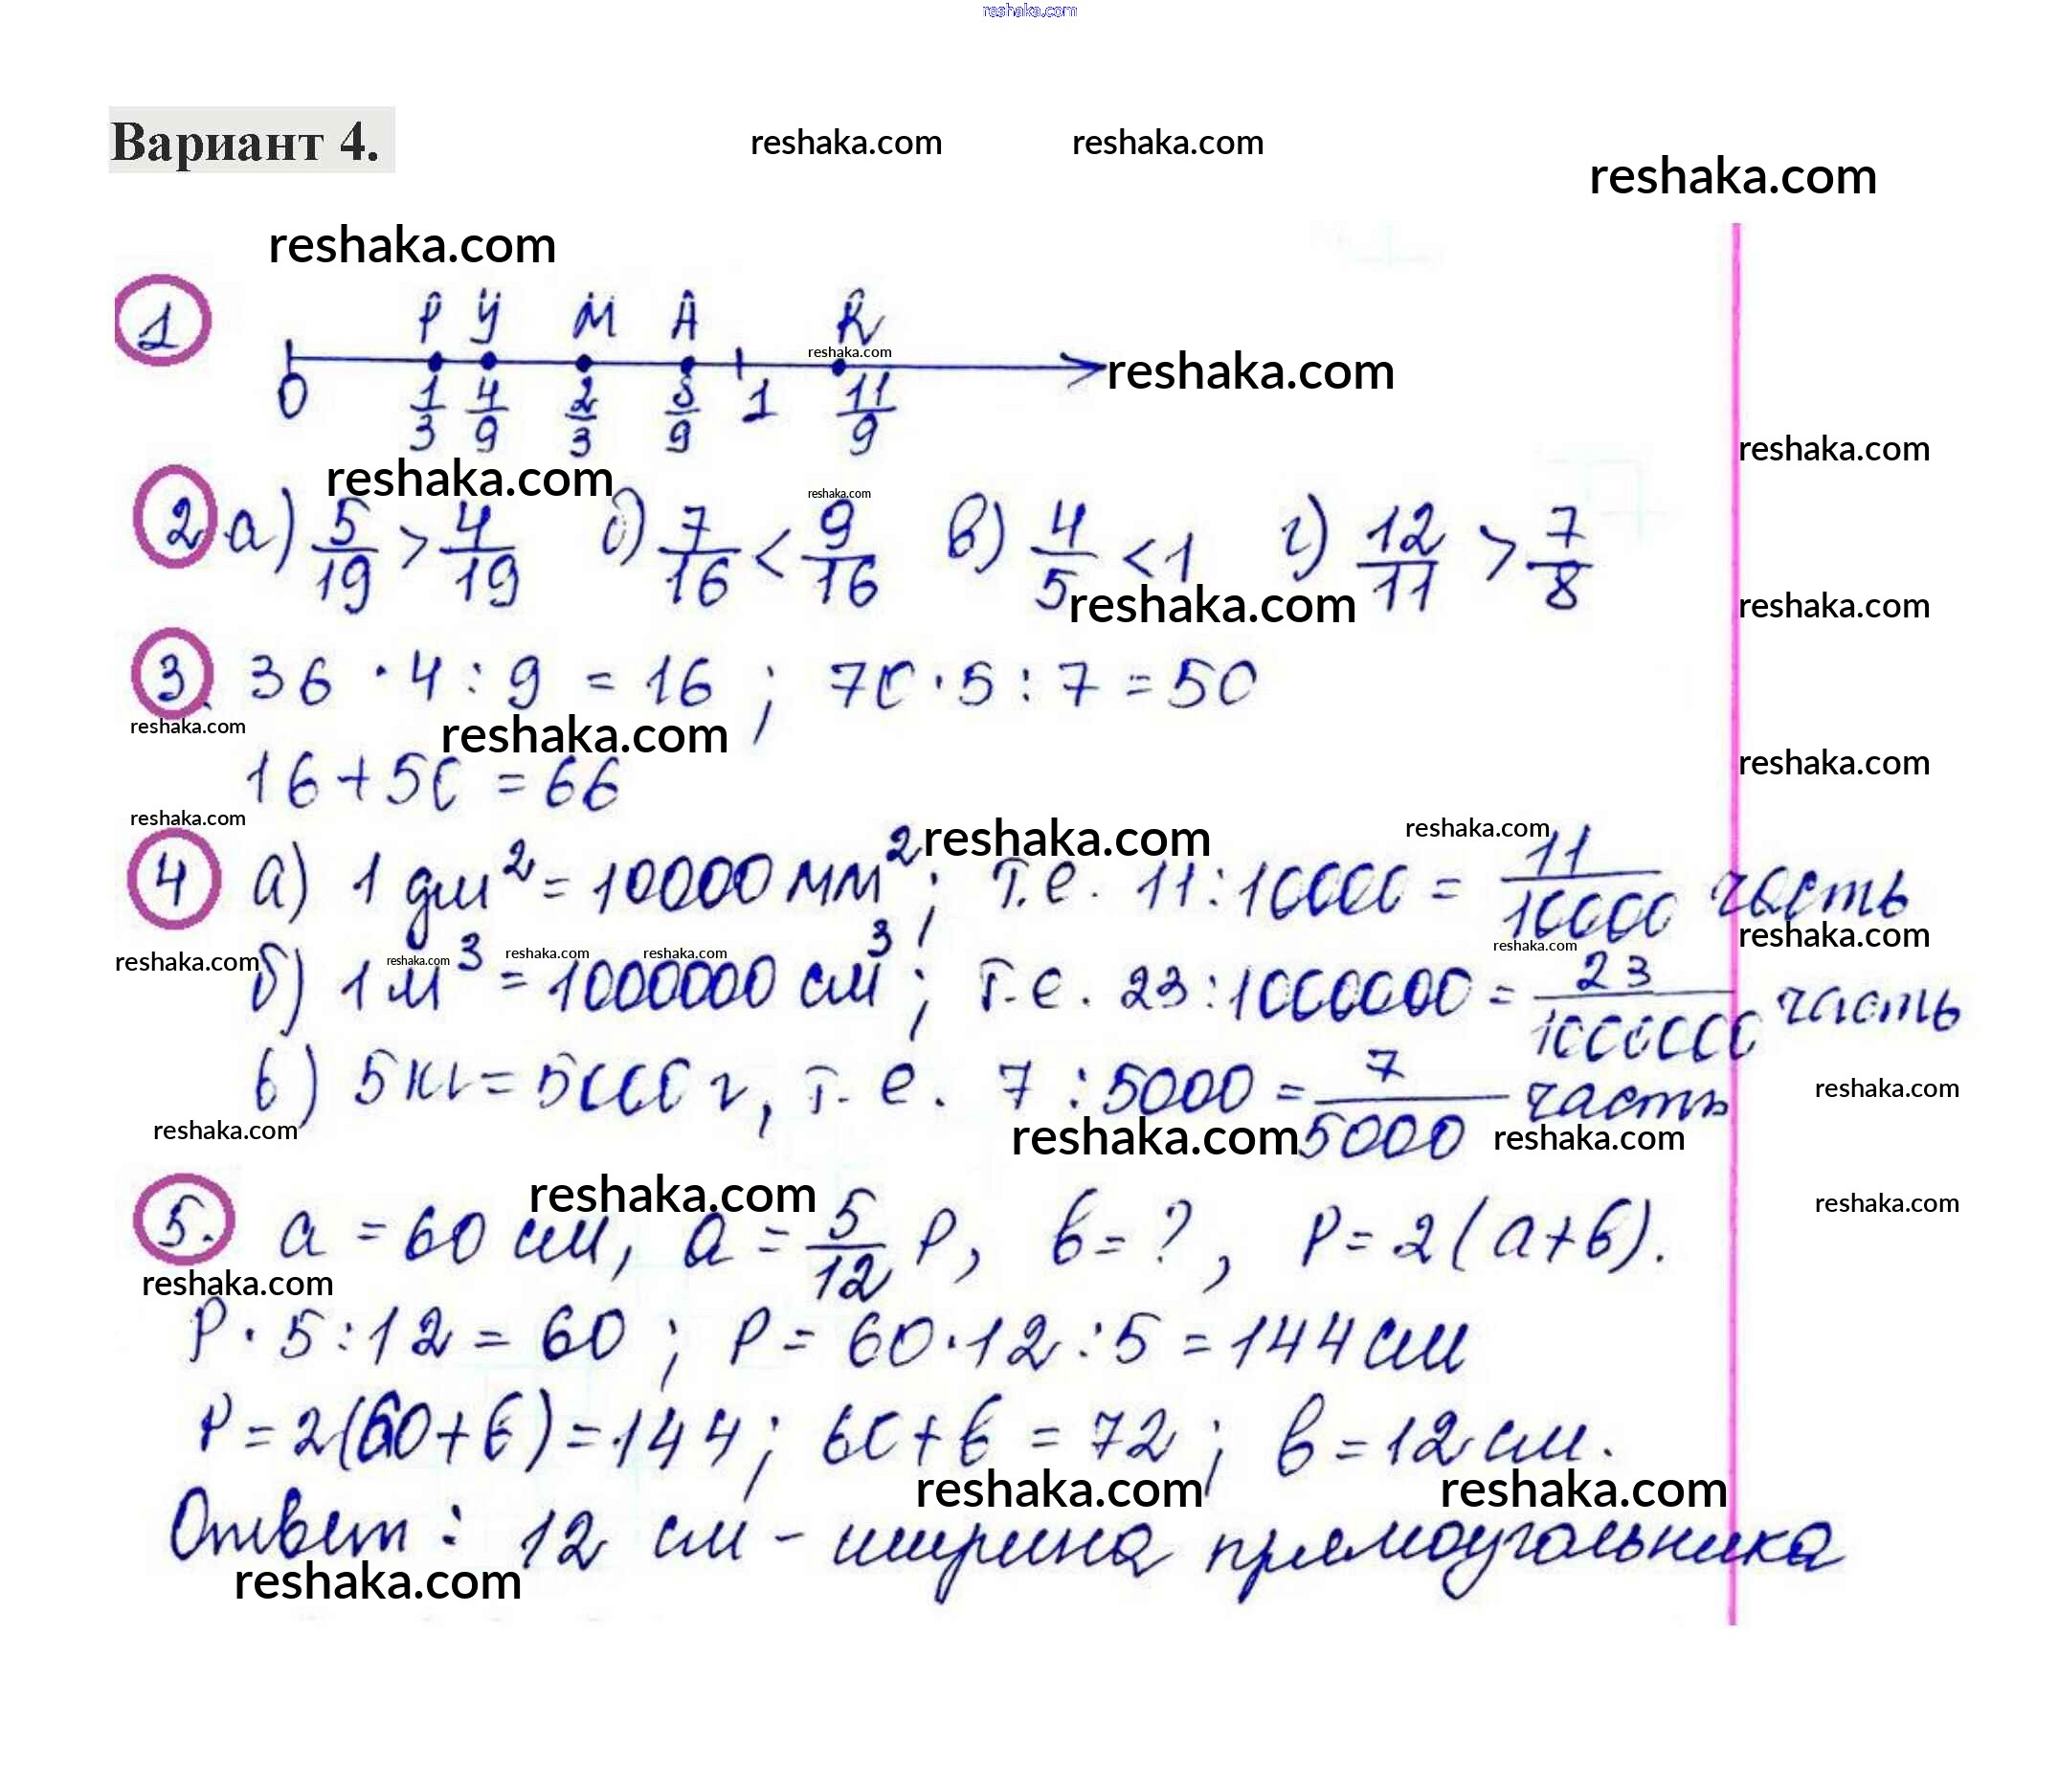 reshaka.com
Вариант 4.
reshaka.com reshaka.com
reshaka.com
reshaka.com
1
P У M A R
reshaka.com
0 1/3 4/9 2/3 8/9 1 11/9
reshaka.com
reshaka.com
reshaka.com
reshaka.com
2 а) 5/19 > 4/19 б) 7/16 < 9/16 в) 4/5 < 1 г) 12/11 > 7/8
reshaka.com
reshaka.com
3. 36 · 4 : 9 = 16 ; 70 · 5 : 7 = 50
reshaka.com
reshaka.com
16 + 50 = 66
reshaka.com
reshaka.com
reshaka.com
reshaka.com
4 а) 1 дм² = 10000 мм²; т.е. 11 : 10000 = 11/10000 часть
reshaka.com
reshaka.com reshaka.com reshaka.com reshaka.com
reshaka.com
б) 1 м³ = 1000000 см³; т.е. 23 : 1000000 = 23/1000000 часть
в) 5 кг = 5000 г, т.е. 7 : 5000 = 7/5000 часть
reshaka.com
reshaka.com
reshaka.com
reshaka.com
reshaka.com
reshaka.com
5. а = 60 см, а = 5/12 P, в = ?, P = 2(а + в).
reshaka.com
P · 5 : 12 = 60 ; P = 60 · 12 : 5 = 144 см
P = 2(60 + в) = 144; 60 + в = 72 ; в = 12 см.
reshaka.com reshaka.com
Ответ : 12 см - ширина прямоугольника
reshaka.com